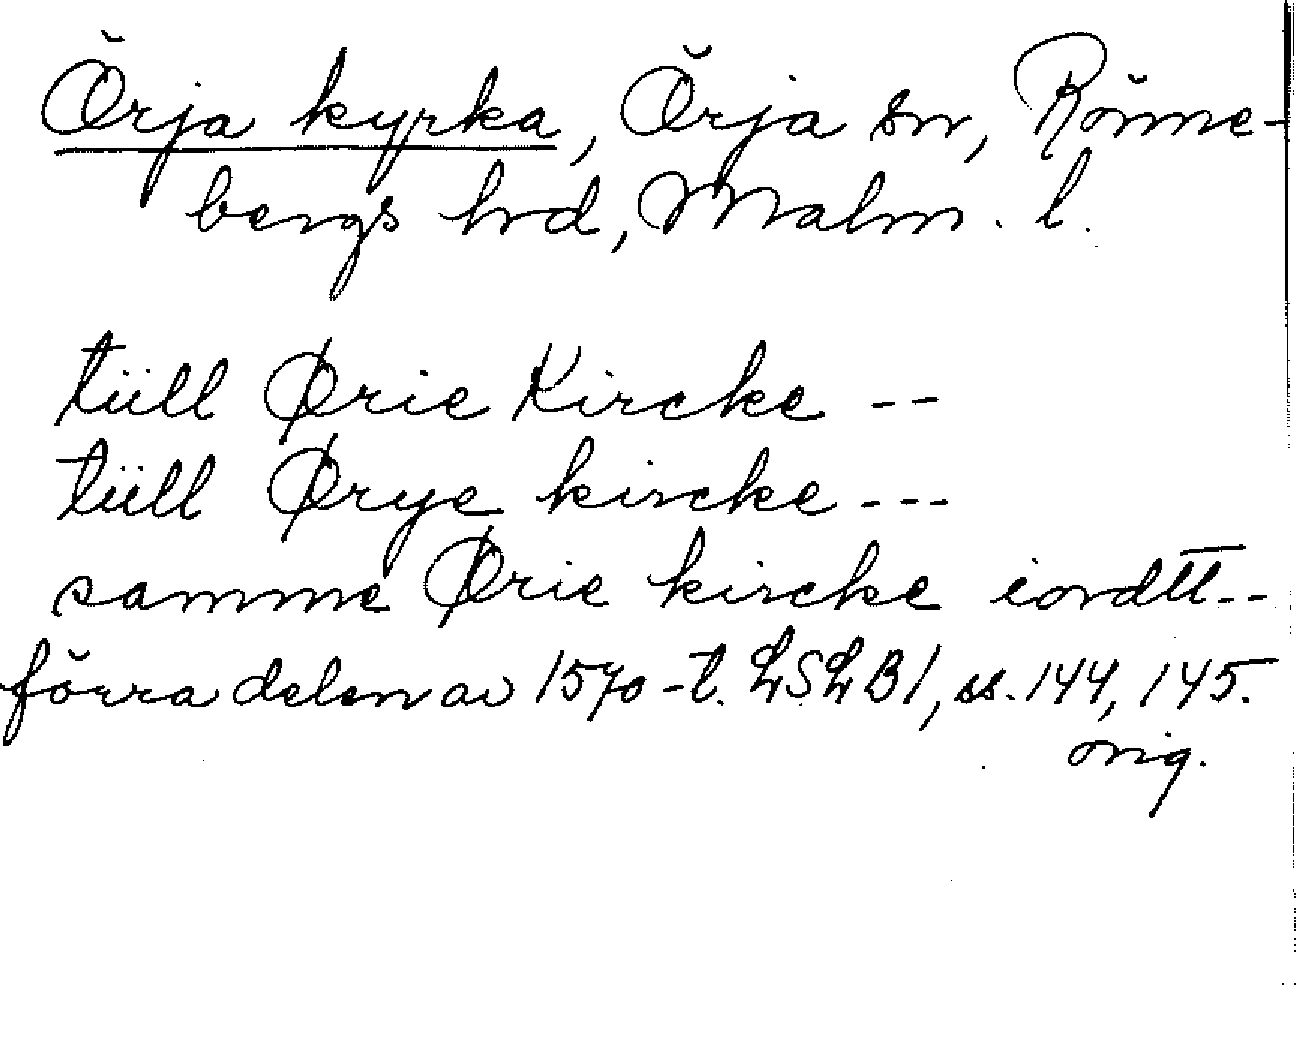 Örja kyrka, Örja sn, Rönne-
bergs hrd, Malm. l.
tüll Ørie Kircke --
tüll Ørye kircke ---
samme Ørie kircke iordtt--
förra delen av 1570-t. LSLB1, ss. 144, 145.
orig.